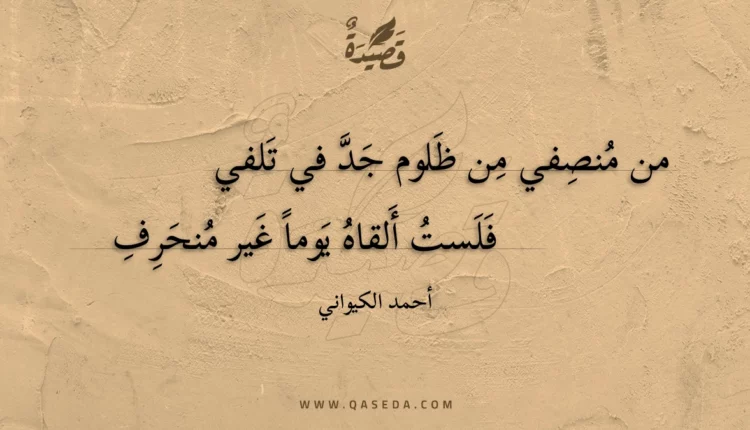 قَصِيْدَةٌ
من مُنصِفي مِن ظَلوم جَدَّ في تَلفي
فَلَستُ أَلقاهُ يَوماً غَير مُنحَرِفِ
أحمد الكيواني
WWW.QASEDA.COM